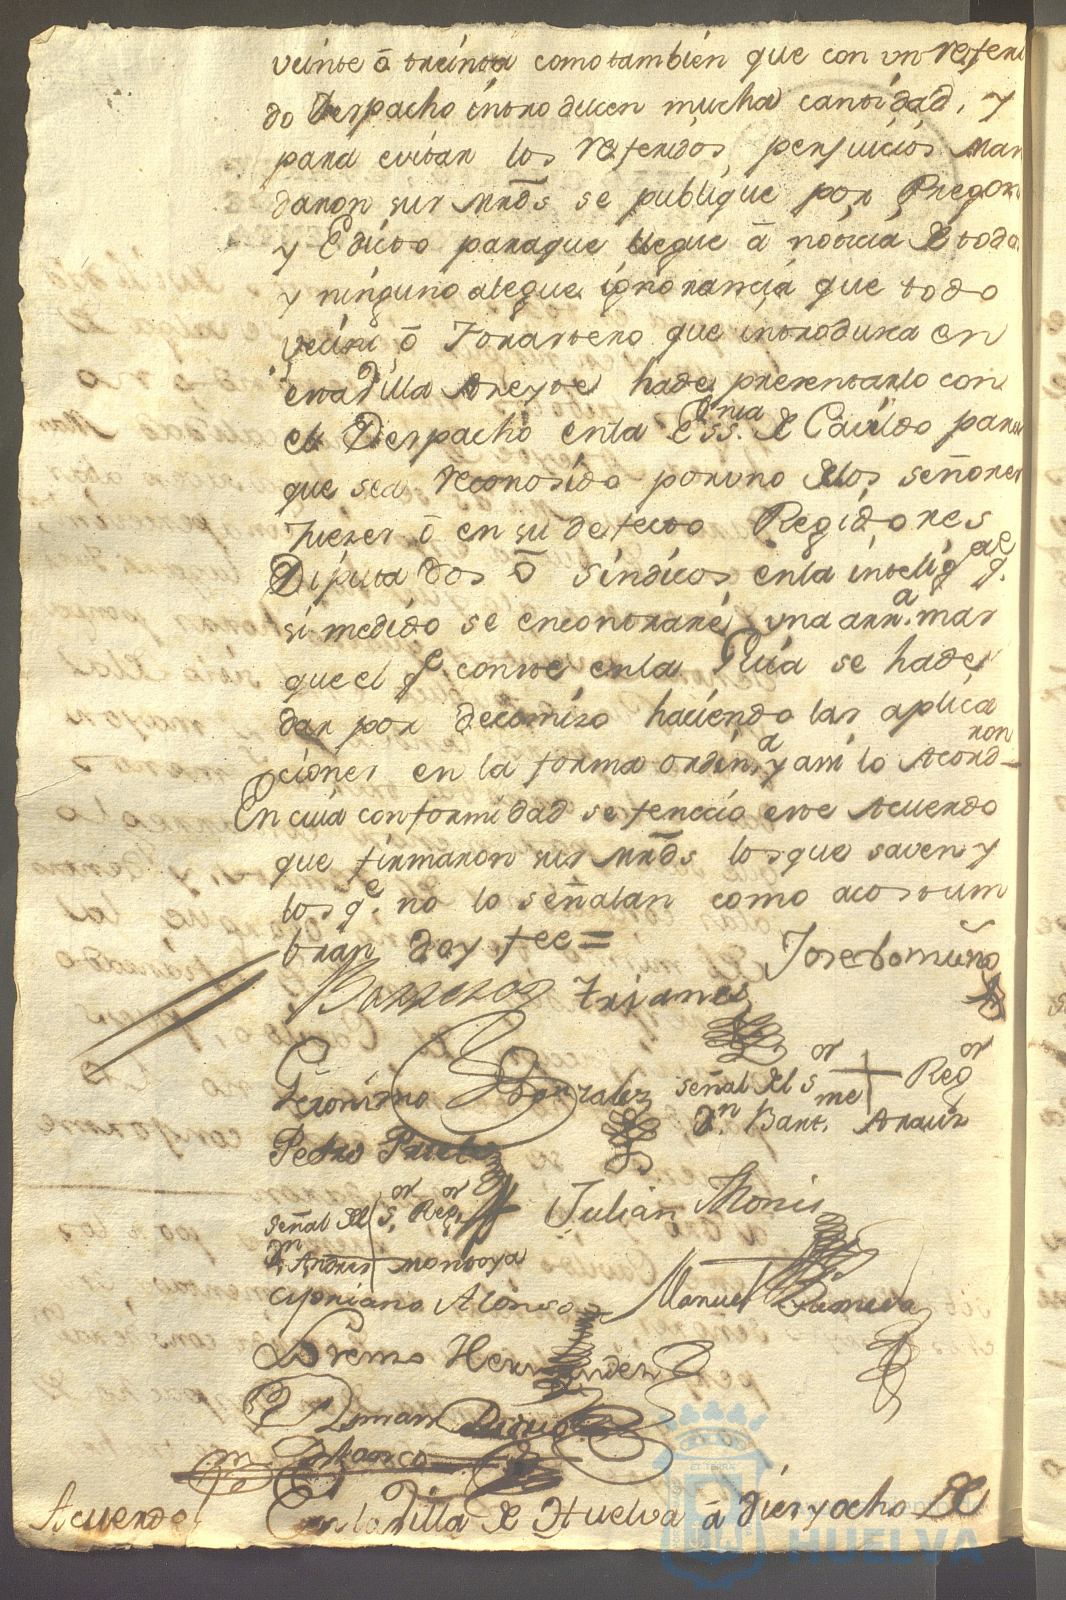 veinte ō treinta como tambien que con un referi
do Despacho introducen mucha cantidad, y
para evitar los referidos perjuicios man
daron sus mrds se publique por Pregon
y Edicto paraque llegue ā noticia de todos
y ninguno alegue ignorancia que todo
vecino ō Forastero que introdusca en
esta Villa Aseyte hade presentarlo con
el Despacho enla Essnia de Cavildo para
que sea reconosido por uno delos señores
Juezes ō en su defecto Regidores
Diputados ō sindicos enla intelig.cia q.e
si medido se encontrare una arr.a mas
que el q.e conste enla Guia se hade
dar por decomiso haciendo las aplica
ciones en la forma ordin.a y assi lo Acordaron
En cuia conformidad se fenecio este Acuerdo
que firmaron sus mrds los que saven y
los q.e no lo señalan como acostum
bran doy fee =
Barreros Trianes
Geronimo Gonzalez
señal del s.or + Reg.or
D.n Bart.me Arauz
Pedro Prieto
señal del s.or Reg.or
D.n Andres Montoya
Julian Monis
Cipriano Alonso
Manuel
Lorenzo Hernandez
Acuerdo
En la Villa de Huelva ā diez y ocho de
HUELVA